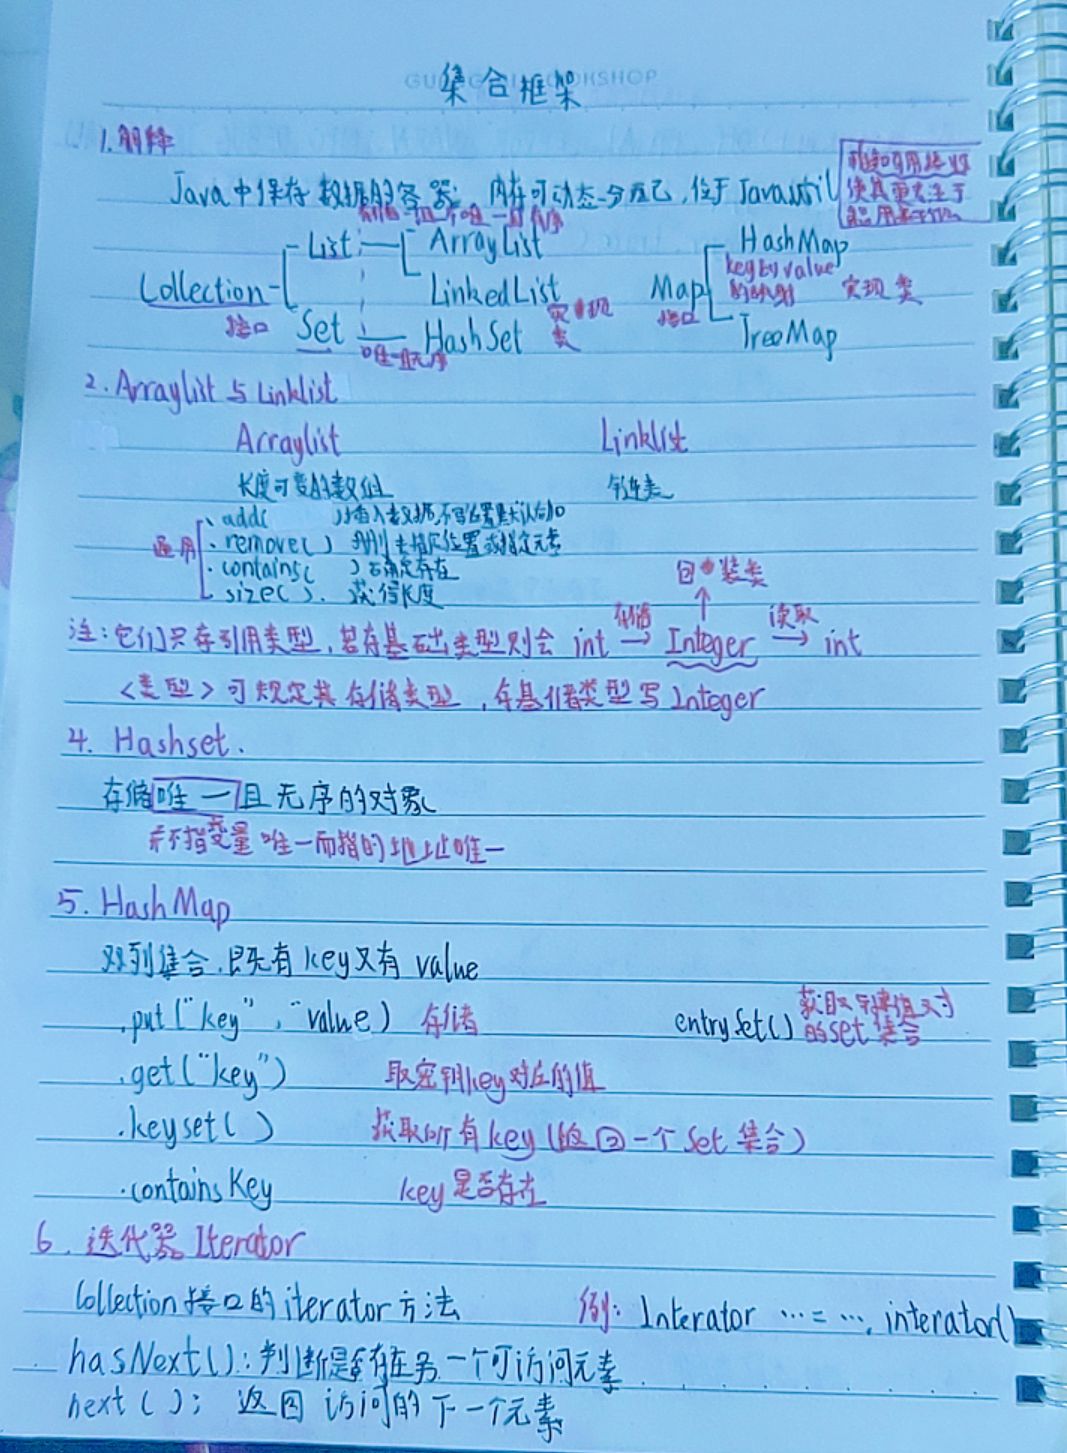 集合框架
1.解释
Java中保存数据的容器,内存可动态分配,位于Java.util
有序 不唯一
List ArrayList
Map HashMap
key与value
的映射
实现类
Collection
接口
LinkedList
实现
类
接口
Set HashSet
唯一且无序
TreeMap
2.Arraylist与Linklist
Arraylist Linklist
长度可变的数组 链表
通用
.add( )插入数据,不写位置默认后加
.remove() 删去指定位置或指定元素
.contains( )否存在
.size(). 获得长度
包装类
注:它们只存引用类型,若存基础类型则会 int 存储→ Integer 读取→ int
<类型>可规定其存储类型,存基础类型写Integer
4. Hashset.
存储唯一且无序的对象
并不指变量唯一而指的地址唯一
5. HashMap
双列集合.既有key又有value
.put("key","value) 存储
entrySet() 获取键值对
的set集合
.get("key") 取密钥key对应的值
.keyset() 获取所有key(返回一个Set集合)
.containsKey key是否存在
6.迭代器Iterator
Collection接口的iterator方法 例:Interator …=….interator()
hasNext():判断是否存在另一个可访问元素
next(): 返回访问的下一个元素